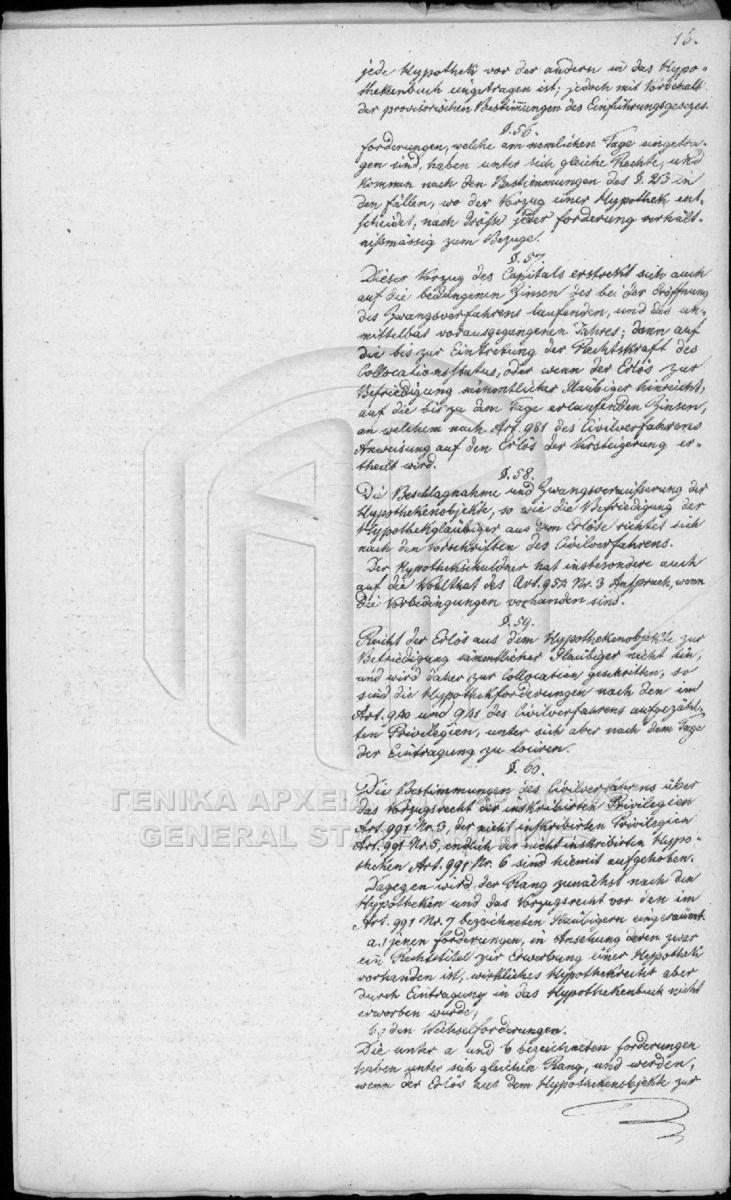 16.
jede Hypothek vor der andern in das Hypo-
thekenbuch eingetragen ist; jedoch mit Vorbehalt
der provisorischen Bestimmungen des Einführungsgesezes.
§.56.
Forderungen, welche am nemlichen Tage eingetra-
gen sind, haben unter sich gleiche Rechte, und
kommen nach den Bestimmungen des §. 213 in
den Fällen, wo der Vorzug einer Hypothek ent-
scheidet, nach Größe jeder Forderung verhält-
nißmässig zum Bezuge.
§.57.
Dieser Vorzug des Capitals erstreckt sich auch
auf die bedungenen Zinsen des bei der Eröffnung
des Zwangsverfahrens laufenden, und des un-
mittelbar vorausgegangenen Jahres; dann auf
die bis zur Eintretung der Rechtskraft des
Collocationsstatus, oder wenn der Erlös zur
Befriedigung sämmtlicher Glaubiger hinreicht,
auf die bis zu dem Tage erlaufenden Zinsen,
an welchem nach Art. 981 des Civilverfahrens
Anweisung auf den Erlös der Versteigerung er-
theilt wird.
§.58.
Die Beschlagnahme und Zwangsveraüsserung der
Hypothekenobjekte, so wie die Befriedigung der
Hypothekglaübiger aus dem Erlöse richtet sich
nach den Vorschriften des Civilverfahrens.
Der Hypothekschuldner hat insbesondere auch
auf die Wohlthat des Art. 954 Nr. 3 Anspruch, wenn
die Vorbedingungen vorhanden sind.
§.59.
Reicht der Erlös aus dem Hypothekenobjekte zur
Befriedigung sämmtlicher Glaubiger nicht hin,
und wird daher zur Collocation geschritten, so
sind die Hypothekforderungen nach den im
Art. 940 und 941 des Civilverfahrens aufgezähl-
ten Privilegien, unter sich aber nach dem Tage
der Eintragung zu lociren.
§.60.
Die Bestimmungen des Civilverfahrens über
das Vorzugsrecht der inskribirten Privilegien
Art. 991 Nr. 3, der nicht inskribirten Privilegien
Art. 991 Nr. 5, endlich der nicht inskribirten Hypo-
theken Art. 991 Nr. 6 sind hiemit aufgehoben.
Dagegen wird der Rang zunächst nach den
Hypotheken und das Vorzugsrecht vor den im
Art. 991 Nr. 7 bezeichneten Glaübigern eingeraümt.
a.) jenen Forderungen, in Ansehung deren zwar
ein Rechtstitel zur Erwerbung einer Hypothek
vorhanden ist, wirkliches Hypothekrecht aber
durch Eintragung in das Hypothekenbuch nicht
erworben wurde,
b.) den Wechselforderungen.
Die unter a und b bezeichneten Forderungen
haben unter sich gleichen Rang, und werden,
wenn der Erlös aus dem Hypothekenobjekte zur
ΓΕΝΙΚΑ ΑΡΧΕΙΑ
GENERAL STA